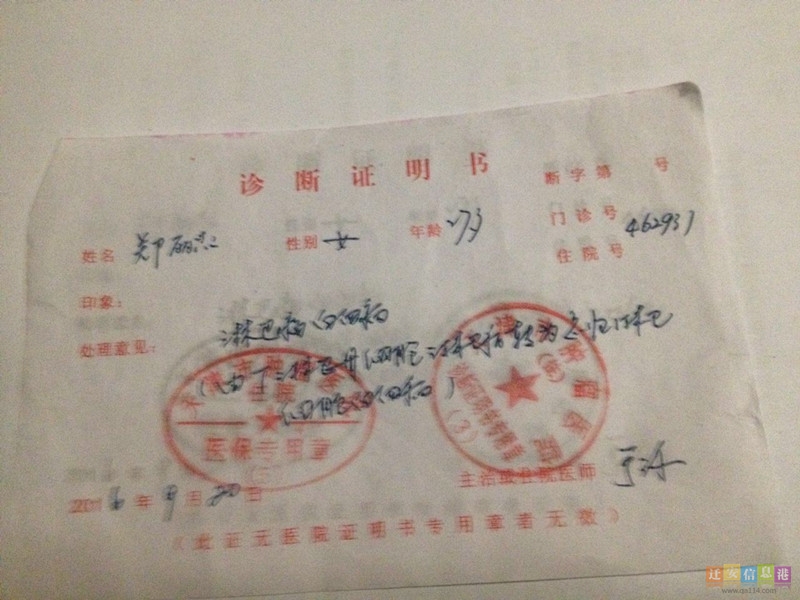 诊断证明书
断字第 号
门诊号
住院号
462937
姓名 郑丽 性别 女 年龄
印象：
淋巴瘤白血病
处理意见：
(由T淋巴母细胞淋巴瘤转为急性淋巴
细胞白血病)
医保专用章
主治或住院医师
2016年9月20日
(此证无医院证明书专用章者无效)
迁安信息港
www.qa114.com